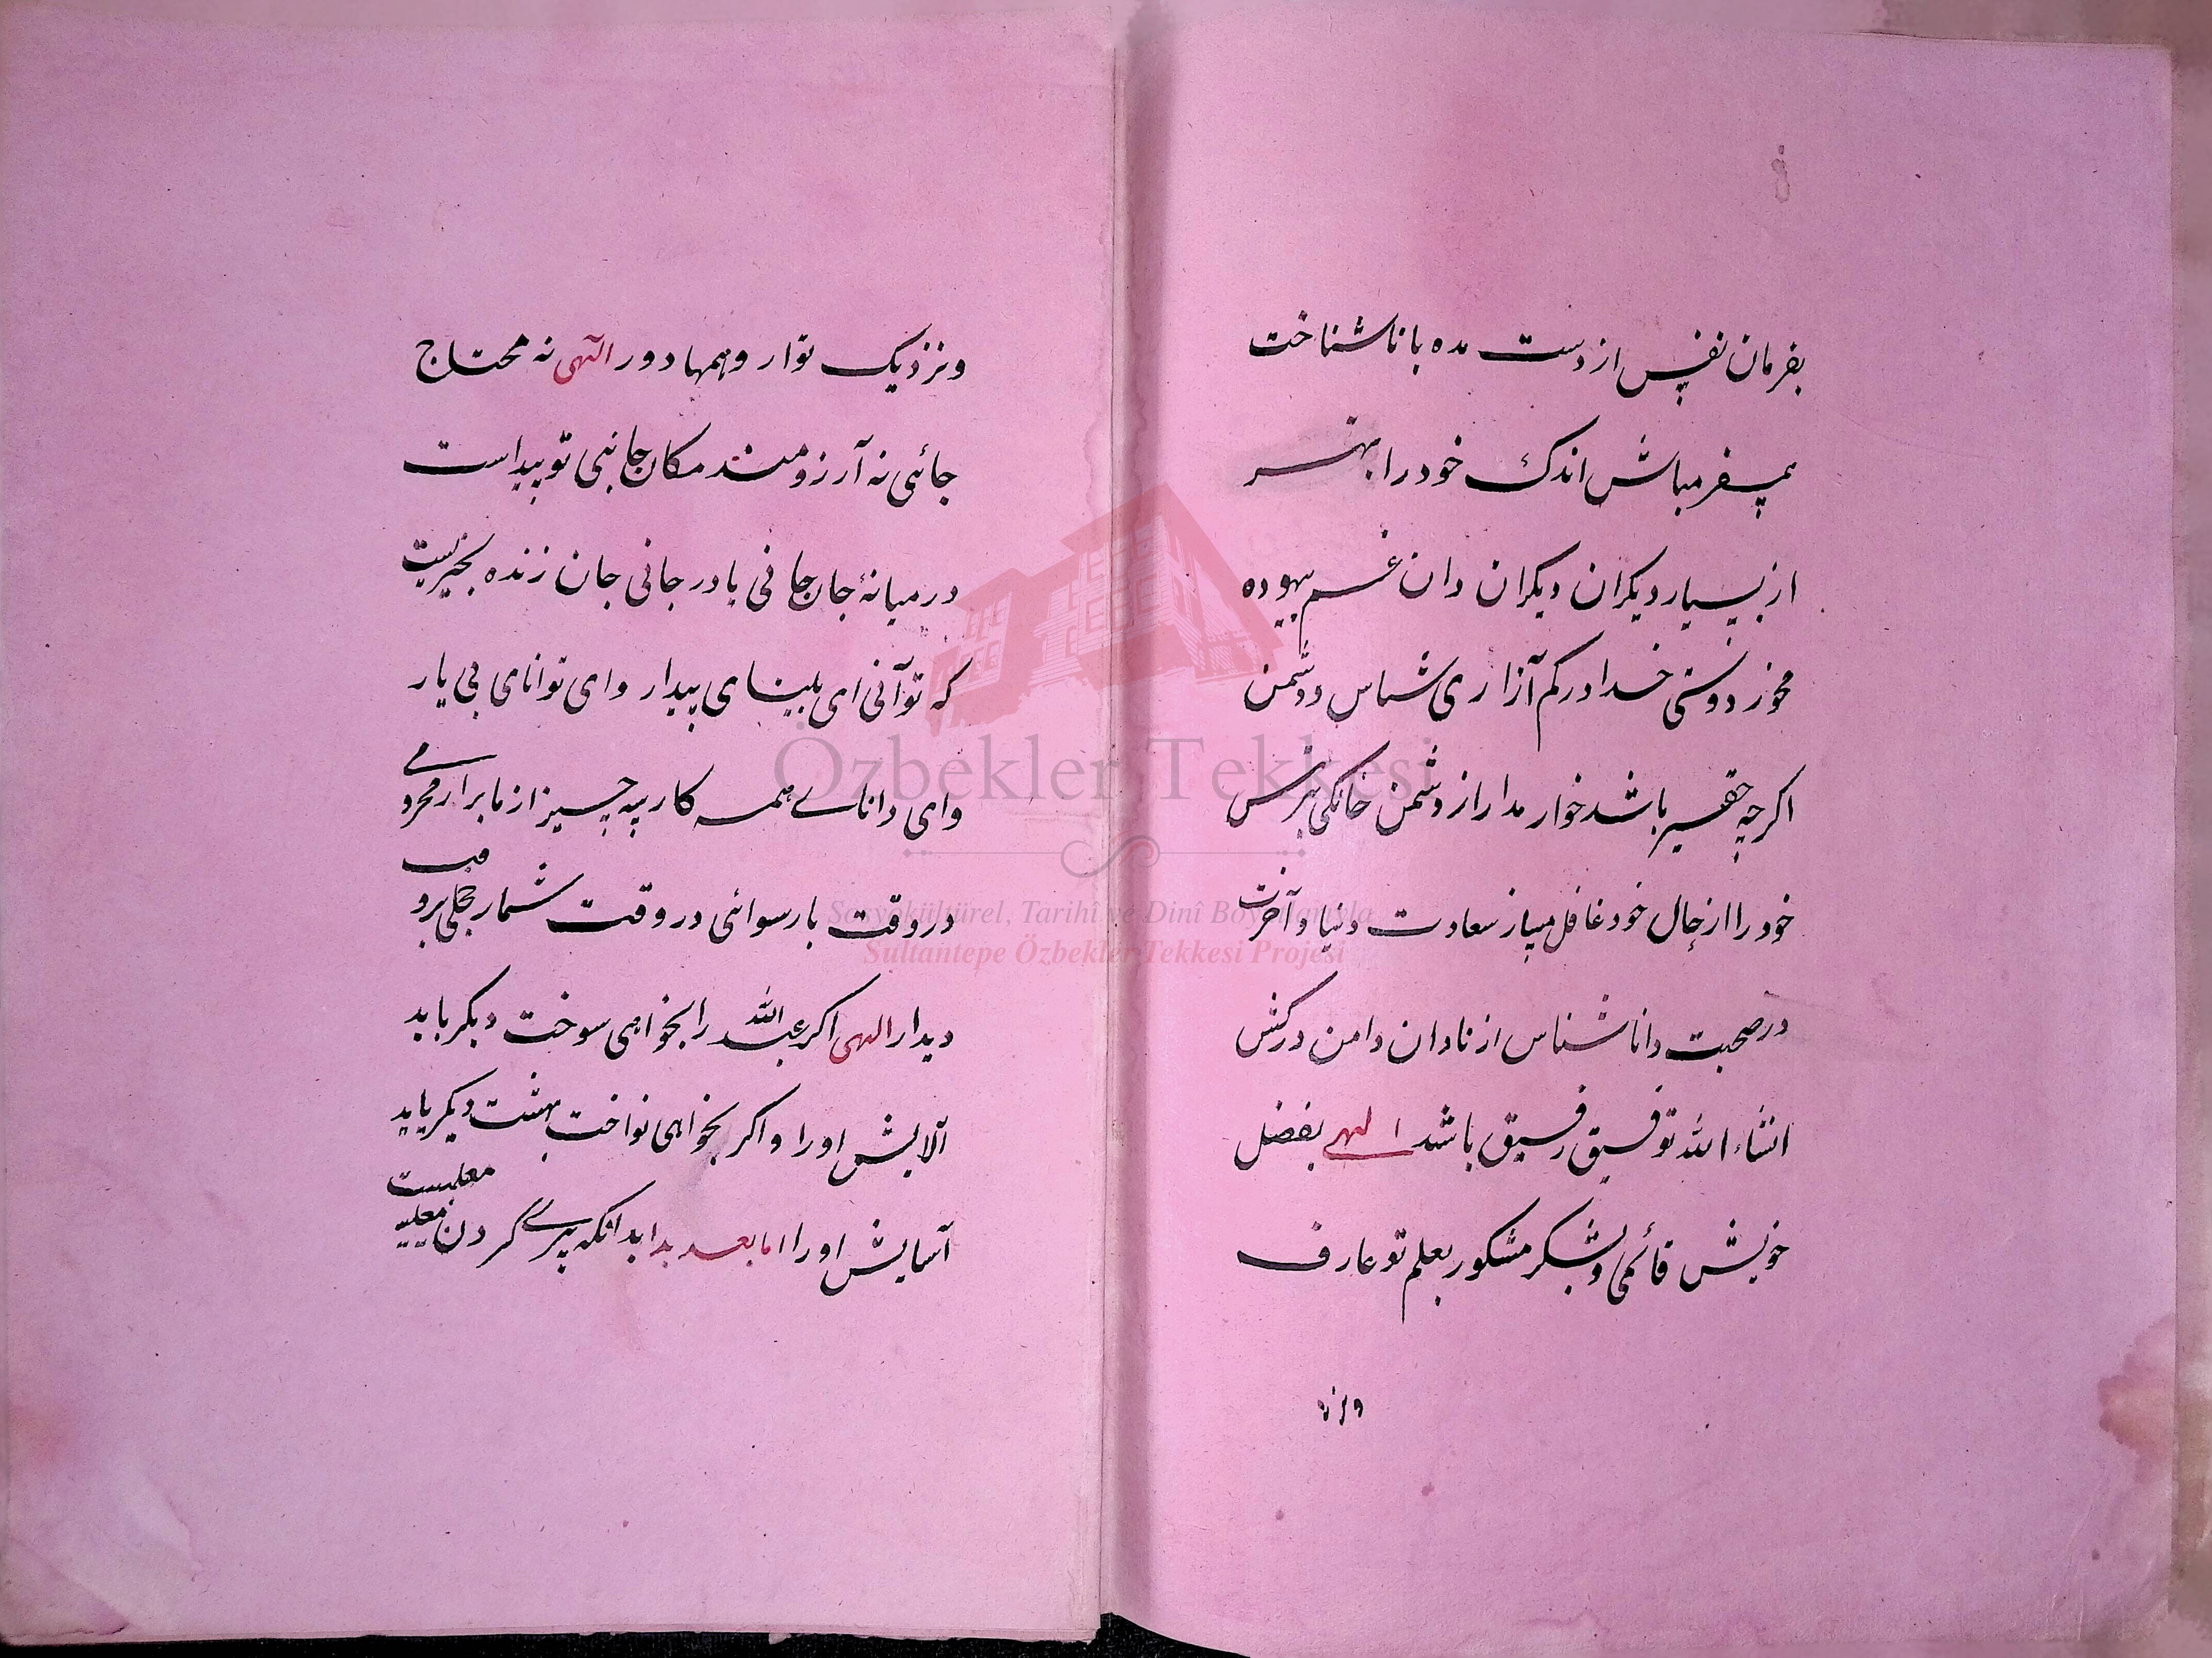 بفرمان نفس از دست مده با ناشناخت
همسفر مباش اندک خود را بهتر
از بسیار دیکران دیکران دان غم بیهوده
مخور دوستی خدا در کم آزاری شناس و دشمن
اکرچه حقیر باشد خوار مدار از دشمن خانکی بترس
خود را از حال خود غافل مساز سعادت دنیا و آخرت
در صحبت دانا شناس از نادان دامن درکش
انشاء الله توفیق رفیق باشد الهی بفضل
خویش قائمی و بشکر مشکور بعلم تو عارف
ونزدیک تو از وهمها دور الهی نه محتاج
جائی نه آرزومند مکان جانبی تو پیداست
در میانهٔ جان جانی یا در جانی جان زنده بخیریست
که تو آنی ای بینای بیدار وای توانای بی یار
وای دانای همه کار سه چیز از ما بردار محرومی
در وقت بار سوائی در وقت شمار خجلی بروقت
دیدار الهی اکر عبدالله را بخواهی سوخت دیکر باید
آلایش او را واکر بخواهی نواخت بهشت دیکر باید
آسایش او را اما بعد بدانکه پیری کردن
Özbekler Tekkesi
Sosyokültürel, Tarihî ve Dinî Boyutlarıyla
Sultantepe Özbekler Tekkesi Projesi